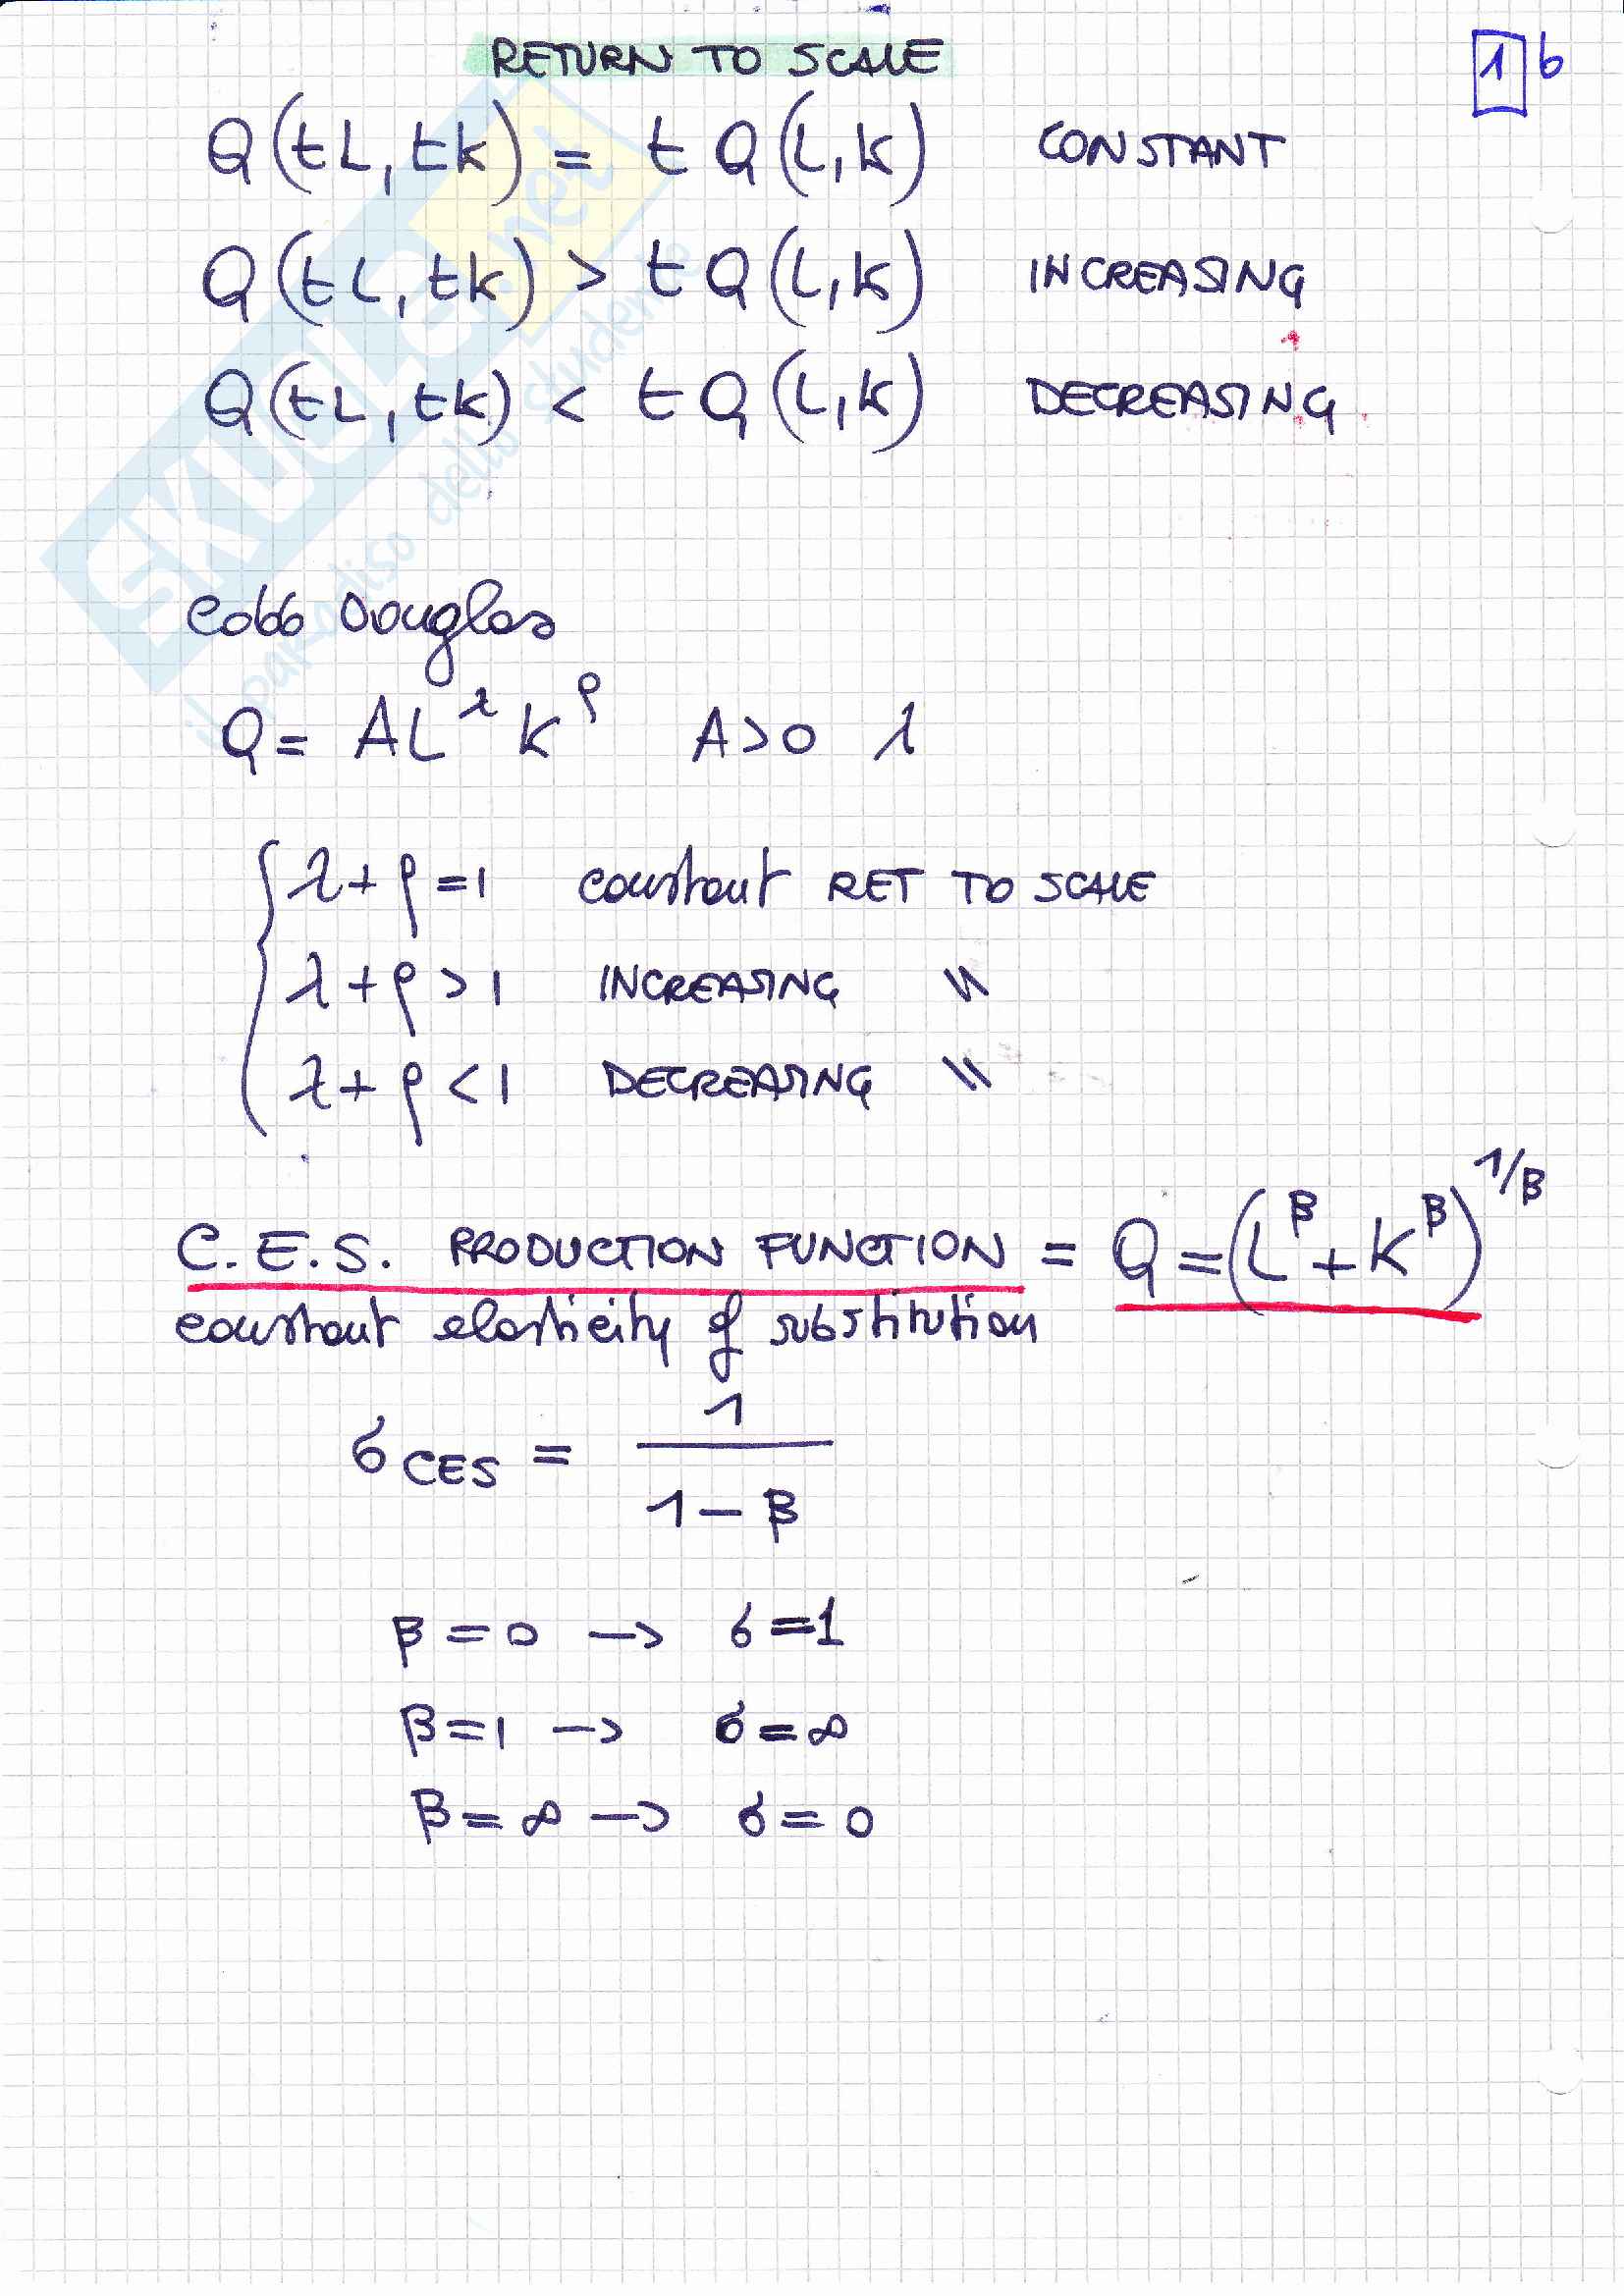 RETURN TO SCALE
1 b
Q(tL, tK) = t Q(L,K) CONSTANT
Q(tL, tK) > t Q(L,K) INCREASING
Q(tL, tK) < t Q(L,K) DECREASING
SKUOLA.net
il paradiso dello studente
Cobb Douglas
Q = A L^λ K^ρ A>0 λ
λ+ρ=1 constant RET TO SCALE
λ+ρ>1 INCREASING \\
λ+ρ<1 DECREASING \\
C.E.S. PRODUCTION FUNCTION = Q=(L^β+K^β)^1/β
constant elasticity of substitution
σ CES = 1 / 1-β
β=0 -> σ=1
β=1 -> σ=∞
β=∞ -> σ=0